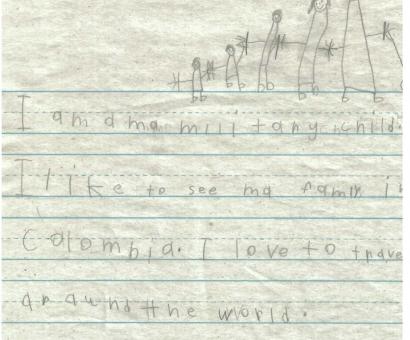 I am a ma military child.
I like to see ma famly in
Calombia. I love to trave
araund the world.